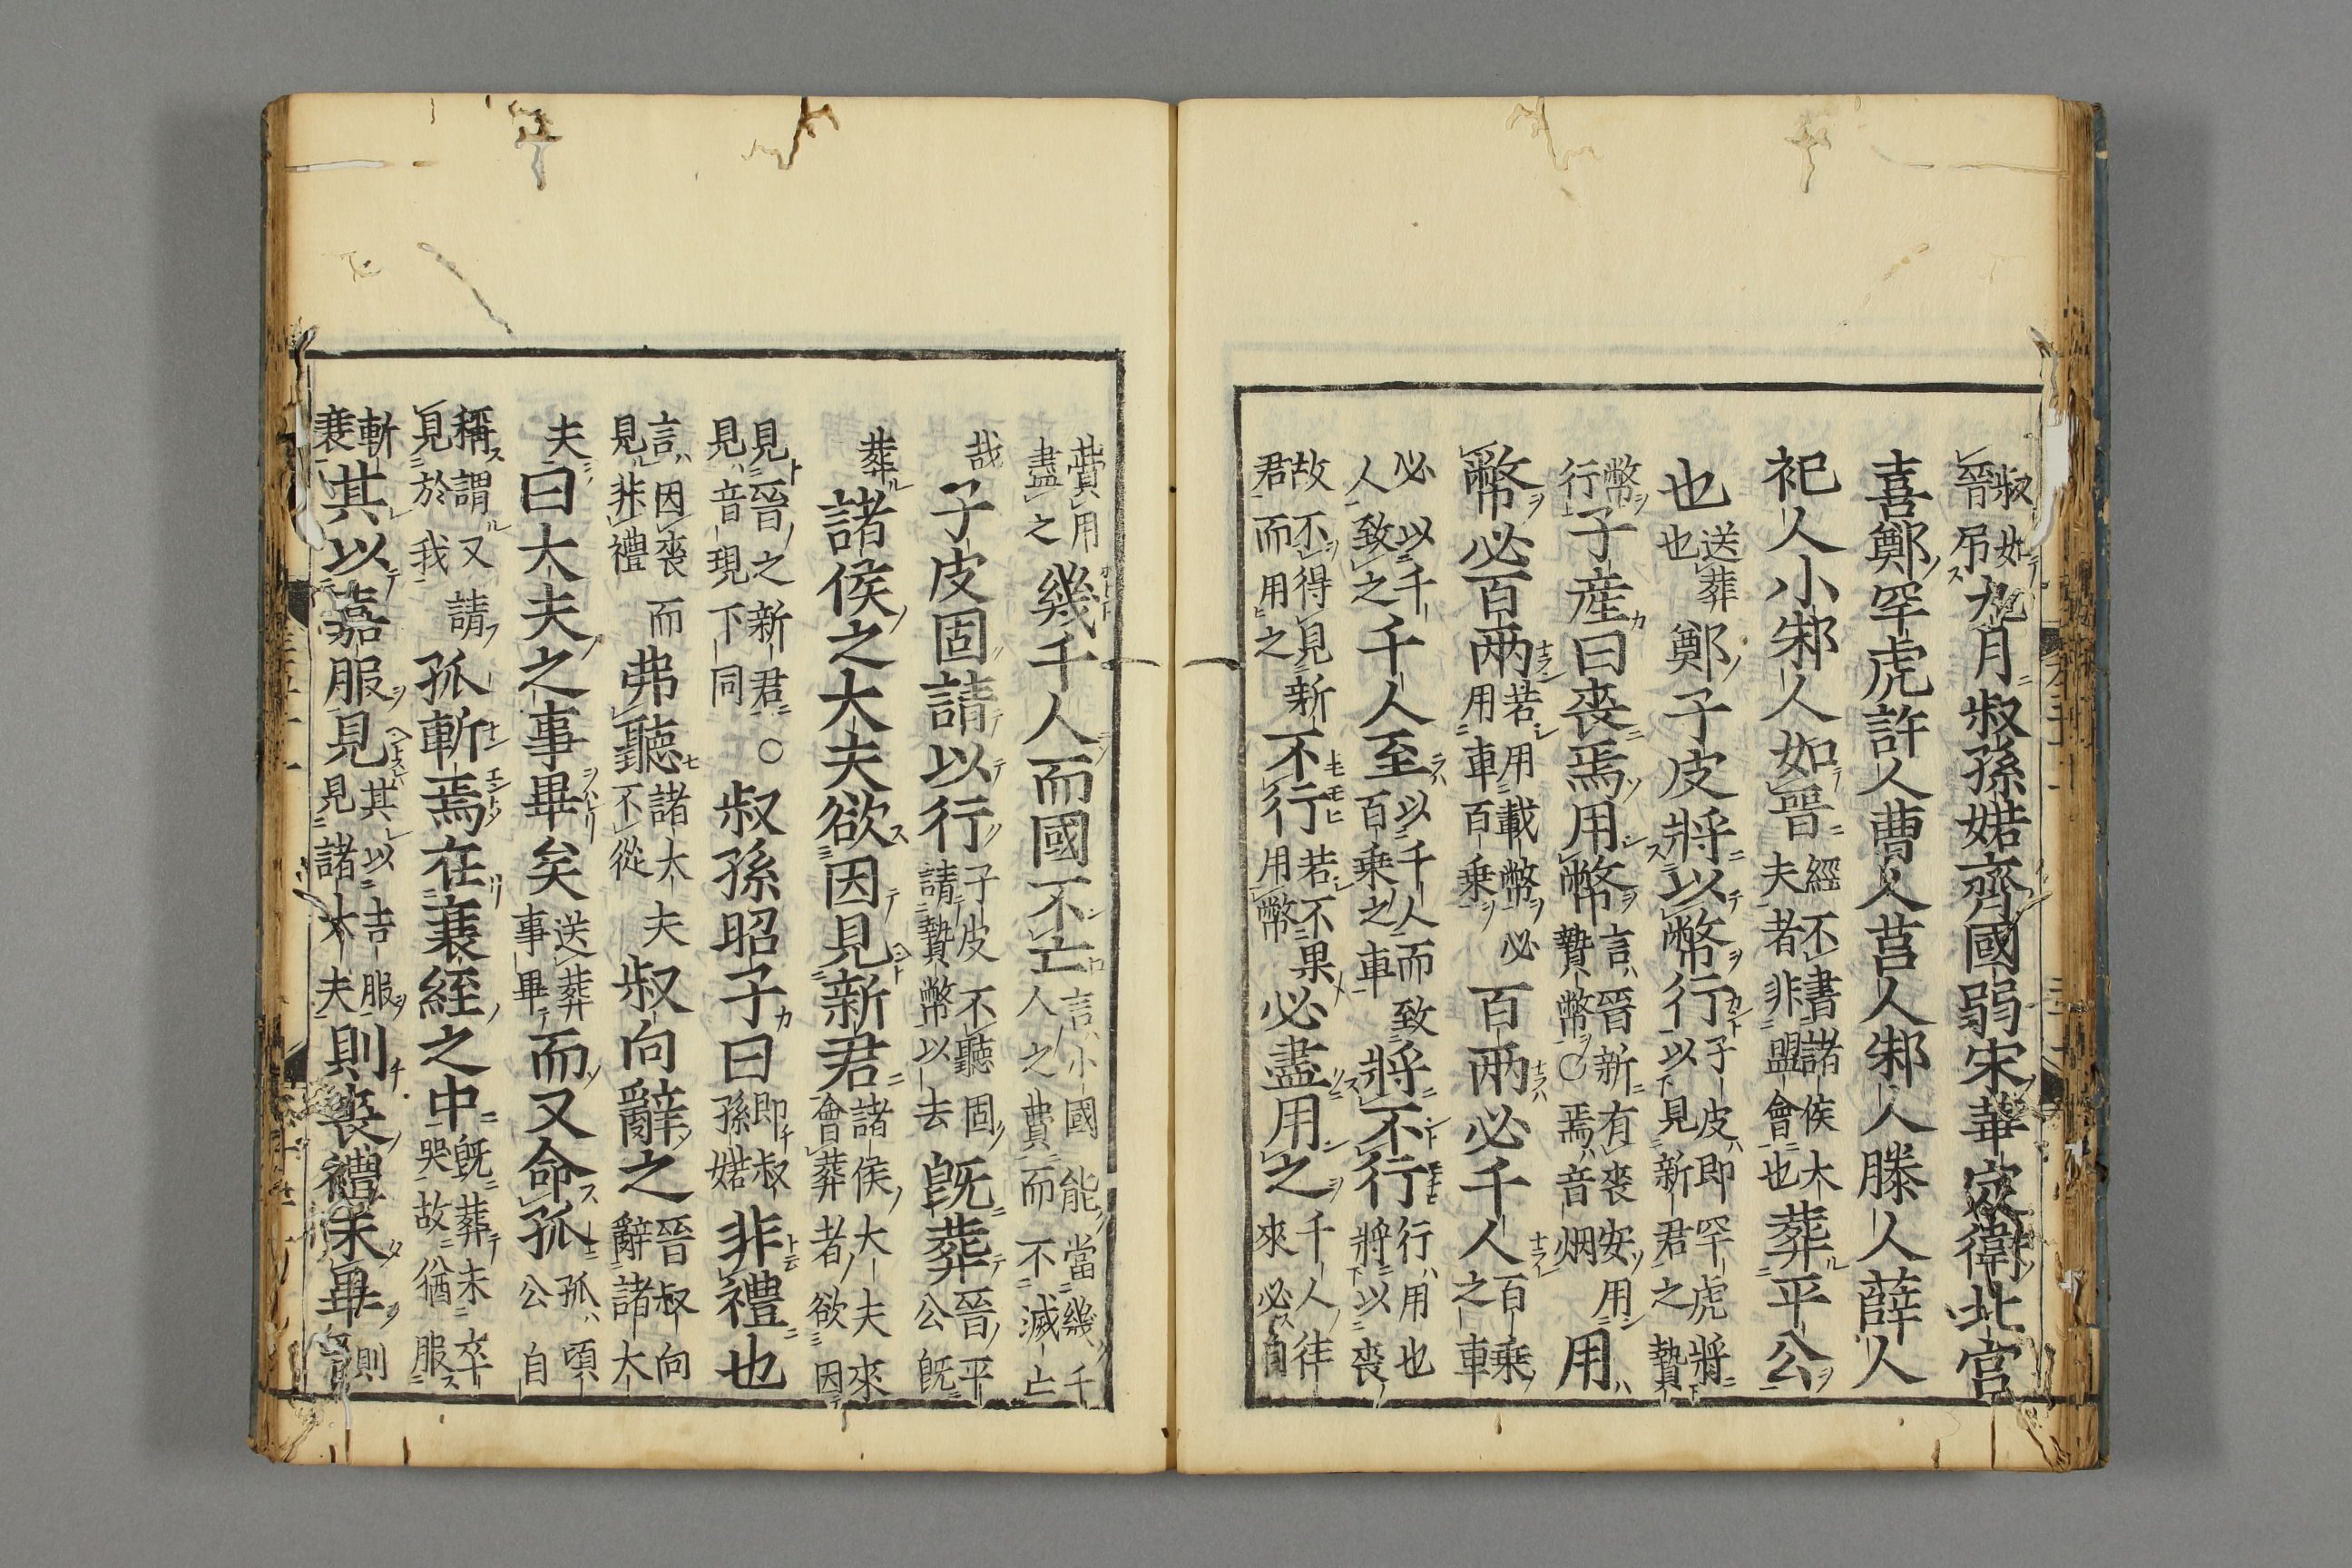 叔如晉吊九月叔孫婼齊國弱宋華定衛北宮
喜鄭罕虎許人曹人莒人邾人滕人薛人
杞人小邾人如晉經不書諸侯大夫者非盟會也葬平公
也送葬也鄭子皮將以幣行子皮即罕虎將以見新君之贄
幣行子產曰喪焉用幣言晉新有喪安用贄幣○焉音烟用
幣必百兩若用載幣必用車百乘百兩必千人百乘之車
必以千人致之千人至以千人而致百乘之車將不行行用也將以喪
故不得見新君而用之不行若不果用幣必盡用之千人往來必自
費用盡之幾千人而國不亡言小國能當幾千人之費而不滅亡
哉子皮固請以行子皮不聽固請贄幣以去既葬晉平公既
葬諸侯之大夫欲因見新君諸侯大夫來會葬者欲因
見晉之新君見音現下同○叔孫昭子曰即叔孫婼非禮也
言因喪而見非禮弗聽諸大夫不從叔向辭之晉叔向辭諸大
夫曰大夫之事畢矣送葬事畢而又命孤孤頃公自
稱謂又請見於我孤斬焉在衰絰之中既葬未卒哭故猶服
斬衰其以嘉服見其以吉服見諸大夫則喪禮未畢則